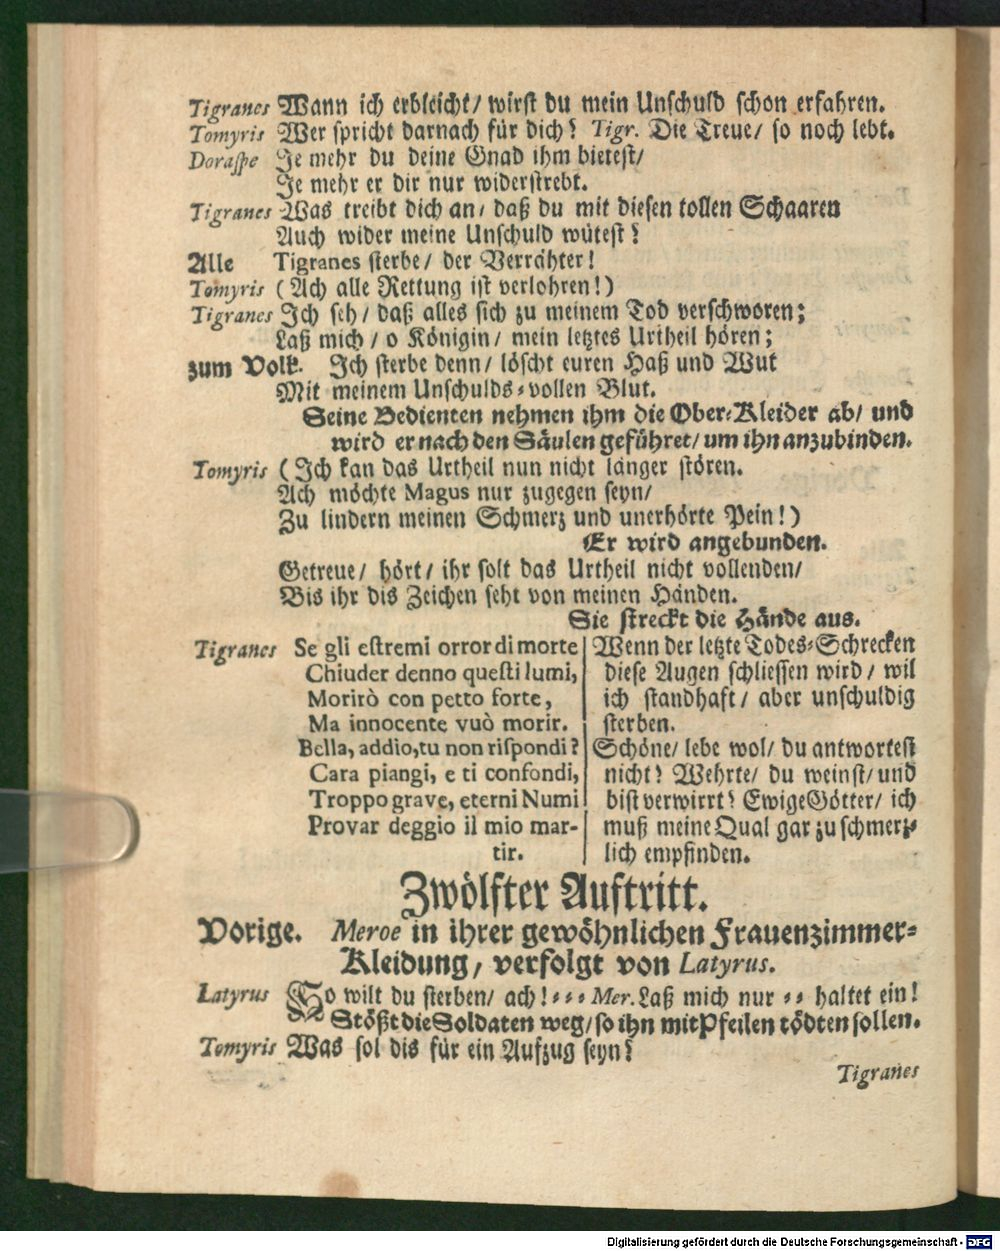 Tigranes Wann ich erbleicht/ wirst du mein Unschuld schon erfahren.
Tomyris Wer spricht darnach für dich? Tigr. Die Treue/ so noch lebt.
Doraspe Je mehr du deine Gnad ihm bietest/
Je mehr er dir nur widerstrebt.
Tigranes Was treibt dich an/ daß du mit diesen tollen Schaaren
Auch wider meine Unschuld wütest?
Alle Tigranes sterbe/ der Verrähter!
Tomyris (Ach alle Rettung ist verlohren!)
Tigranes Ich seh/ daß alles sich zu meinem Tod verschworen;
Laß mich/ o Königin/ mein letztes Urtheil hören;
zum Volk. Ich sterbe denn/ löscht euren Haß und Wut
Mit meinem Unschulds-vollen Blut.
Seine Bedienten nehmen ihm die Ober-Kleider ab/ und
wird er nach den Säulen geführet/ um ihn anzubinden.
Tomyris (Ich kan das Urtheil nun nicht länger stören.
Ach möchte Magus nur zugegen seyn/
Zu lindern meinen Schmerz und unerhörte Pein!)
Er wird angebunden.
Getreue/ hört/ ihr solt das Urtheil nicht vollenden/
Bis ihr dis Zeichen seht von meinen Händen.
Sie streckt die Hände aus.
Tigranes Se gli estremi orror di morte
Chiuder denno questi lumi,
Morirò con petto forte,
Ma innocente vuò morir.
Bella, addio, tu non rispondi?
Cara piangi, e ti confondi,
Troppo grave, eterni Numi
Provar deggio il mio mar-
tir.
Wenn der letzte Todes-Schrecken
diese Augen schliessen wird/ wil
ich standhaft/ aber unschuldig
sterben.
Schöne/ lebe wol/ du antwortest
nicht? Wehrte/ du weinst/ und
bist verwirrt? Ewige Götter/ ich
muß meine Qual gar zu schmerz-
lich empfinden.
Zwölfter Auftritt.
Vorige. Meroe in ihrer gewöhnlichen Frauenzimmer-
Kleidung, verfolgt von Latyrus.
Latyrus So wilt du sterben/ ach! - - - Mer. Laß mich nur - - haltet ein!
Stößt die Soldaten weg/ so ihn mit Pfeilen tödten sollen.
Tomyris Was sol dis für ein Aufzug seyn?
Tigranes
Digitalisierung gefördert durch die Deutsche Forschungsgemeinschaft - DFG